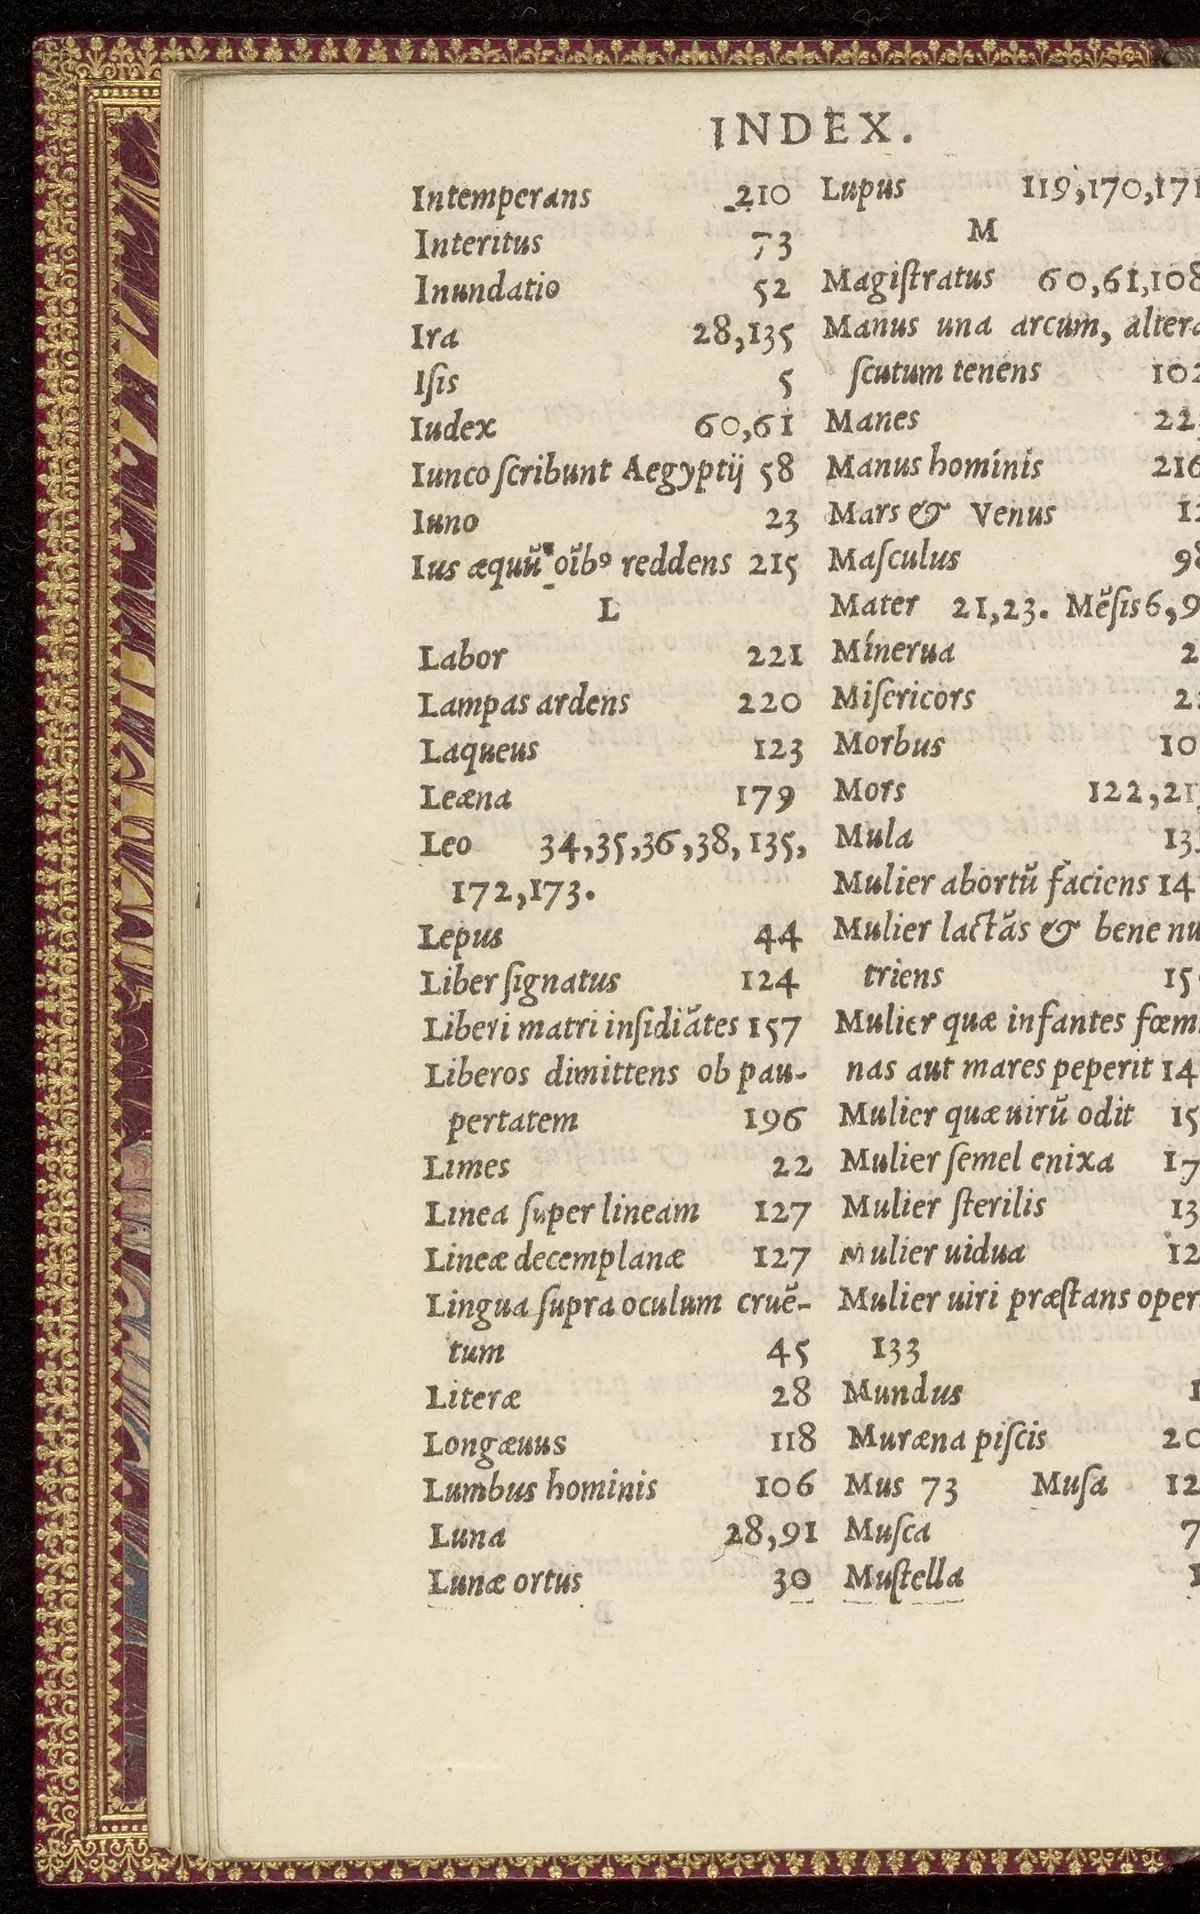 INDEX.
Intemperans 210
Interitus 73
Inundatio 52
Ira 28,135
Iſis 5
Iudex 60,61
Iunco ſcribunt Aegyptij 58
Iuno 23
Ius æquũ oĩbꝰ reddens 215
L
Labor 221
Lampas ardens 220
Laqueus 123
Leæna 179
Leo 34,35,36,38,135,
172,173.
Lepus 44
Liber ſignatus 124
Liberi matri inſidiãtes 157
Liberos dimittens ob pau-
pertatem 196
Limes 22
Linea ſuper lineam 127
Lineæ decemplanæ 127
Lingua ſupra oculum cruẽ-
tum 45
Literæ 28
Longæuus 118
Lumbus hominis 106
Luna 28,91
Lunæ ortus 30
Lupus 119,170,171
M
Magiſtratus 60,61,108
Manus una arcum, altera
ſcutum tenens 102
Manes 22
Manus hominis 216
Mars & Venus 1
Maſculus 98
Mater 21,23. Mẽſis 6,9
Minerua 2
Miſericors 2
Morbus 10
Mors 122,21
Mula 13
Mulier abortũ faciens 14
Mulier lactãs & bene nu
triens 15
Mulier quæ infantes fœm
nas aut mares peperit 14
Mulier quæ uirũ odit 15
Mulier ſemel enixa 17
Mulier ſterilis 13
Mulier uidua 12
Mulier uiri præſtans oper
133
Mundus 1
Muræna piſcis 20
Mus 73 Muſa 12
Muſca 7
Muſtella 1